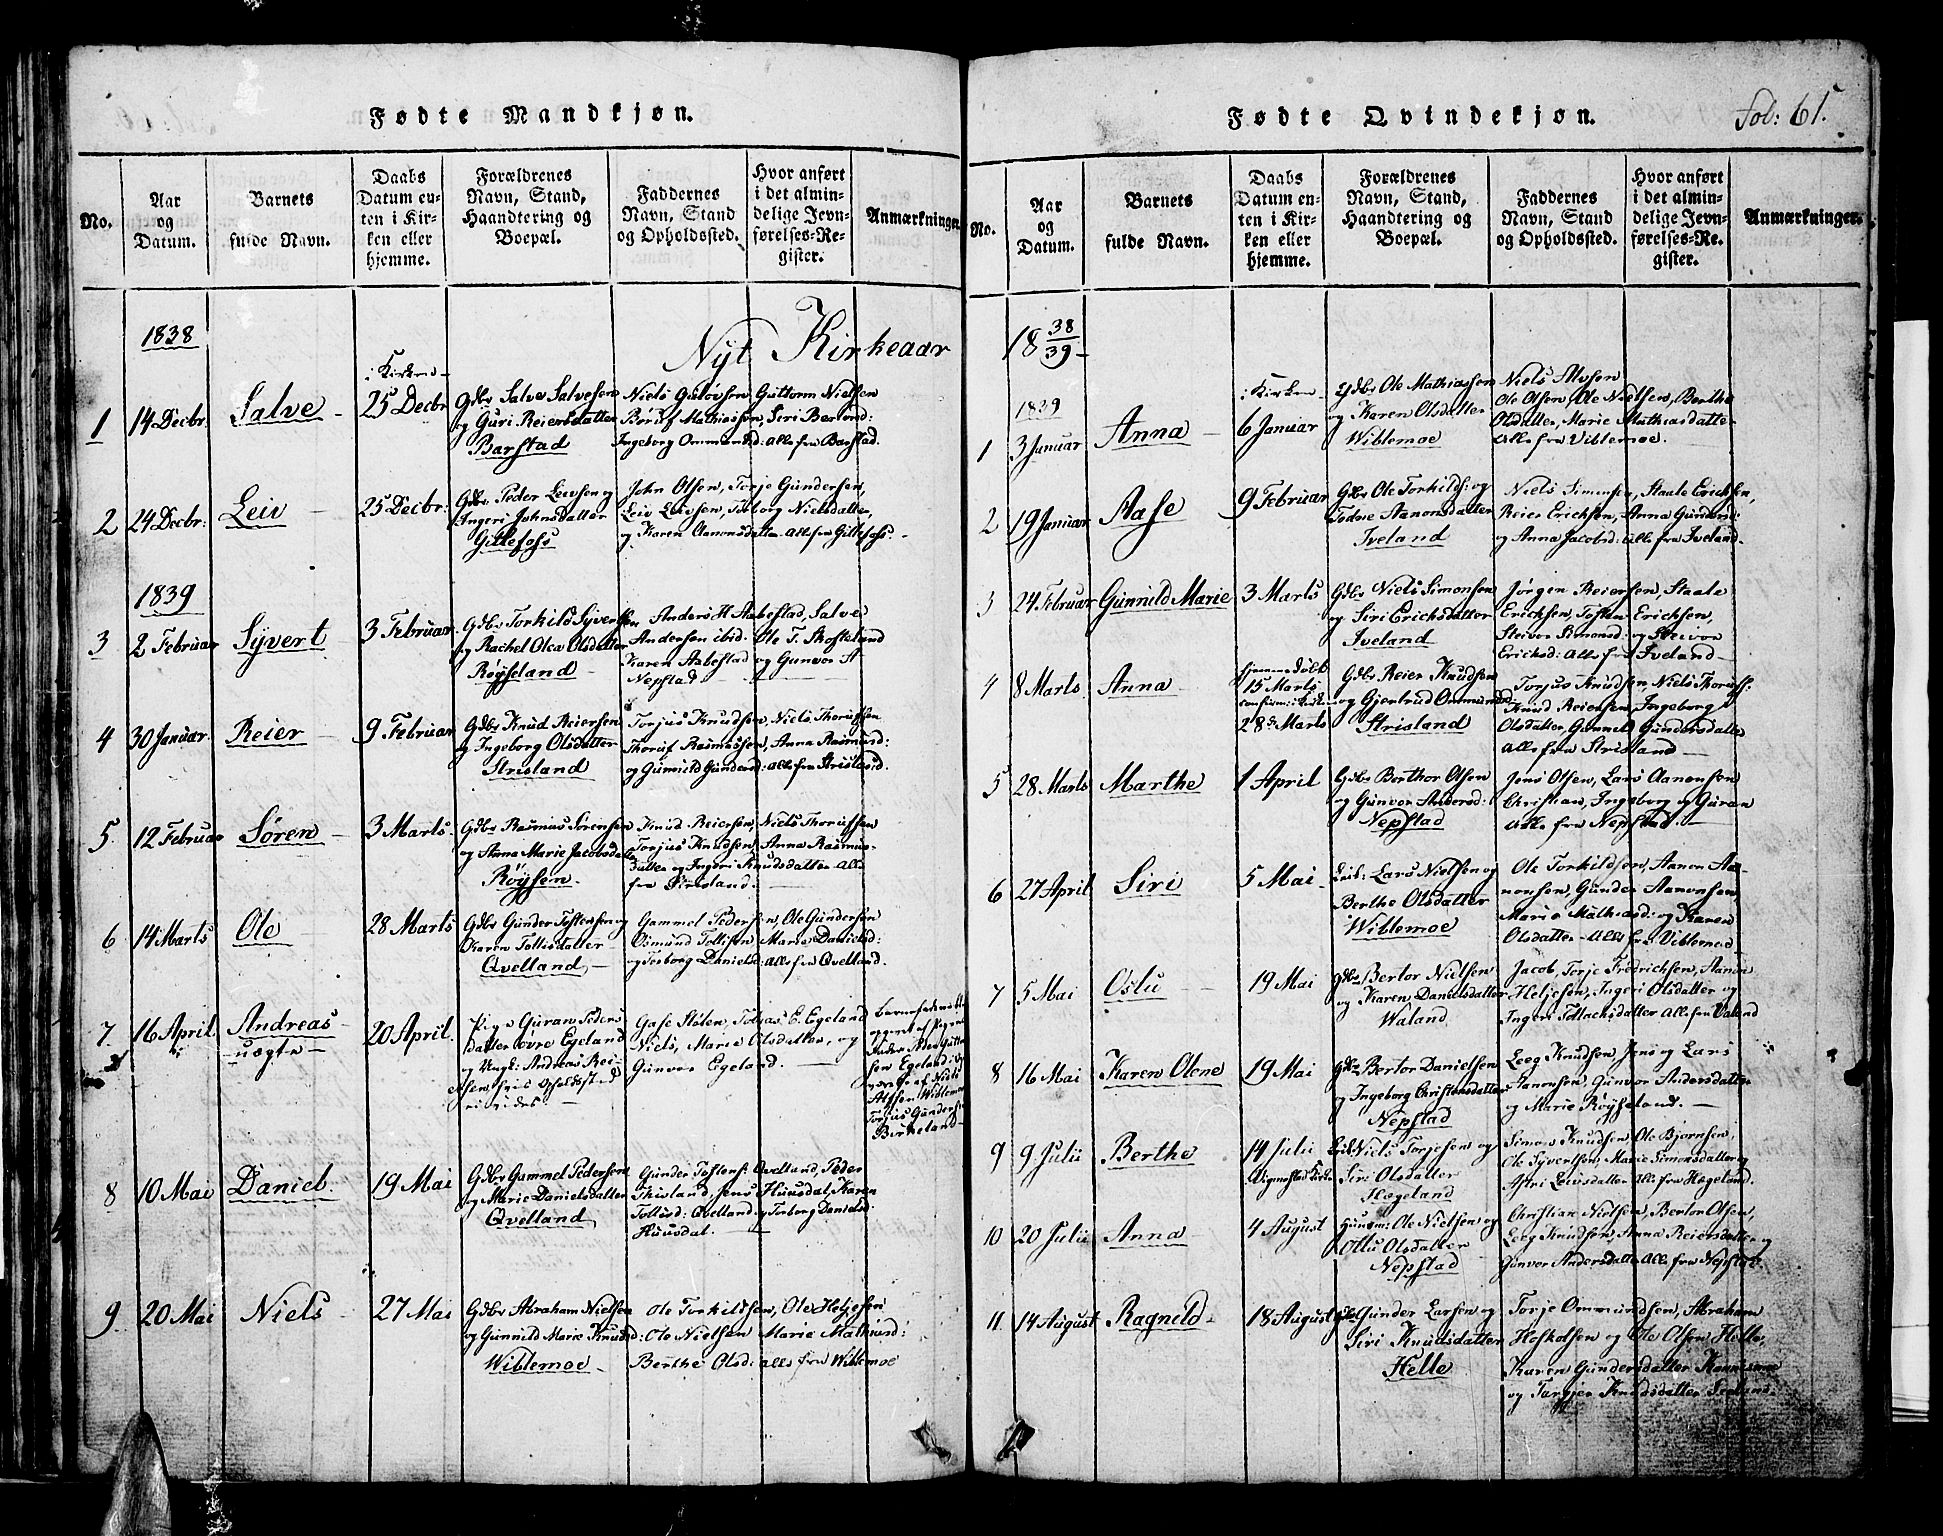 Fødte Mandkjøn.
No.
Aar
og
Datum.
Barnets
fulde Navn.
Daabs
Datum en-
ten i Kir-
ken eller
hjemme.
Forældrenes
Navn, Stand,
Haandtering og
Boepæl.
Faddernes
Navn, Stand
og Opholdssted.
Hvor anført
i det almin-
delige Jevn-
førelses-Re-
gister.
Anmærkninger.
1838
Nyt Kirkeaar
1
14 Decbr.
Salve
i Kirken
25 Decbr
Gdbr Salve Salvesen
og Guri Reiersdatter
Barstad
Niels Guttorm Nielsen
Mathiassen, Siri Berthod:
Ingeborg Ommundsd: alle fra Barstad.
2
24 Decbr:
Leiv
25 Decbr:
Gdbr Peder Leivsen og
Ingeri Johnsdatter
Gillefoss
John Olsen, Torje Gundersen,
Leiv Leivsen, Torborg Nielsdatter,
og Karen Aanonsdatter alle fra Gillefoss.
1839
3
2 Februar
Syvert
3 Februar
Gdbr Torkild Syversen
og Rachel Olea Olsdatter
Røyseland
Anders H Aabestad, Salve
Andersen ibid. Ole T. Skoskeland
Karen Aabestad og Gunvor A
Nepstad
4
30 Januar
Reier
9 Februar
Gdbr Knud Reiersen
og Ingeborg Olsdatter
Strisland
Torjus Knudsen, Niels Thorufsen
Thoruf Rasmussen, Anna Rasmusd:
og Gunnild Gundersd: alle fra Strisland.
5
12 Februar
Søren
3 Marts
Gdbr Rasmus Sørensen
og Anna Marie Jacobsdatter
Røysen
Knud Reiersen, Niels Thorufsen
Torjus Knudsen, Anna Rasmus-
datter og Ingeri Knudsdatter alle
fra Strisland.
6
14 Marts
Ole
28 Marts
Gdbr Gunder Tostensen og
Karen Tollisdatter
Qvelland
Gammel Pedersen, Ole Gundersen
Osmund Tollisen, Marie Danielsd:
og Torborg Danielsd: alle fra Qvelland.
7
16 April
Andreas
uægte
20 April.
Pige Guran Peders
datter øvre Egeland
og Ungk: Andreas Rei-
ersen, hvis Opholdssted
ei vides.
Gase Stølen, Tobias E. Egeland
Niels, Marie Olsdatter, og
Gunvor Egeland.
Egeland
Niels
Torjus Gundersen
Birkeland
8
10 Mai
Daniel
19 Mai
Gdbr Gammel Pedersen
og Marie Danielsdatter
Qvelland
Gunder Tostens: Qvelland, Peder
Thisland, Jens Huusdal, Karen
Tollisd: Qvelland og Torborg Danielsd.
Huusdal.
9
20 Mai
Niels
27 Mai
Gdbr Abraham Nielsen
og Gunnild Marie Knudsd:
Wiblemoe
Ole Torkildsen, Ole Heljesen
Ole Nielsen Marie Mathiasd:
Berthe Olsd: alle fra Wiblemoe
Fødte Qvindekjøn.
Fol: 61.
No.
Aar
og
Datum.
Barnets
fulde Navn.
Daabs
Datum en-
ten i Kir-
ken eller
hjemme.
Forældrenes
Navn, Stand,
Haandtering og
Boepæl.
Faddernes
Navn, Stand
og Opholdssted.
Hvor anført
i det almin-
delige Jevn-
førelses-Re-
gister.
Anmærkninger.
18 38/39
1839
1
3 Januar
Anna
i Kirken
6 Januar
Gdbr Ole Mathiassen
og Karen Olsdatter
Wiblemoe
Niels Alvsen
Ole Olsen, Ole Nielsen, Berthe
Olsdatter, Marie Mathiasdatter
alle fra Viblemoe.
2
19 Januar
Aase
9 Februar
Gdbr Ole Torkilds: og
Todne Aanonsdatter
Iveland
Niels Simonsen, Staale Erichsen,
Reier Erichsen, Anna Gundersd:
og Anna Jacobsd: alle fra Iveland.
3
24 Februar
Gunnild Marie
3 Marts
Gdbr Niels Simonsen
og Siri Erichsdatter
Iveland
Jørgen Reiersen, Staale
Erichsen, Tosten Erichsen,
Steivor Simonsd. og Steivor
Ericksd: alle fra Iveland
4
8 Marts
Anna
hjemmedøbt
15 Marts
confirm: i Kirken
28de Marts
Gdbr Reier Knudsen
og Gjertrud Ommundsd
Strisland
Torjus Knudsen, Niels Thorufs:
Knud Reiersen, Ingeborg
Olsdatter, Gunneld Gundersdatter
Alle fra Strisland
5
28 Marts
Marthe
1 April
Gdbr Berthor Olsen
og Gunvor Andersd:
Nepstad
Jens Olsen, Lars Aanonsen
Christian, Ingeborg og Guran
alle fra Nepstad.
6
27 April
Siri
5 Mai
Leil: Lars Nielsen og
Berthe Olsdatter
Wiblemoe
Ole Torkildsen, Aanon Aa-
nonsen, Gunder Aanonsen,
Marie Mathiasd: og Karen
Olsdatter Alle fra Viblemoe
7
5 Mai
Oslu
19 Mai
Gdbr Bertor Nielsen
og Karen Danielsdatter
Waland
Jacob, Torje Fredrichsen, Aanon
Heljesen, Ingeri Olsdatter og
Inger Tollachsdatter Alle fra Valand
8
16 Mai
Karen Olene
19 Mai
Gdbr Bertor Danielsen
og Ingeborg Christensdatter
Nepstad
Leeg Knudsen, Jens og Lars
Aanonsen, Gunvor Andersdatter
og Marie Røyseland.
9
9 Julii
Berthe
14 Julii
Vignestad Kirke
Leil: Niels Torjesen og
Siri Olsdatter
Hægeland
Simon Knudsen, Ole Bjornsen,
Ole Syvertsen, Marie Simonsdatter og
Astri Leivsdatter alle fra Hægeland.
10
20 Julii
Anna
4 August
Huusm: Ole Nielsen og
Ollu Olsdatter
Nepstad
Christian Nielsen, Bertor Olsen,
Leeg Knudsen, Anna Reiersdatter og
Gunvor Andersdatter Alle fra Nepstad.
11
14 August
Ragnild
18 August
Gdbr Gunder Larsen og
Siri Knudsdatter
Helle
Torje Ommundsen, Abraham
Hoskolsen og Ole Olsen Helle,
Karen Gundersdatter
og Targjer Knudsdatter